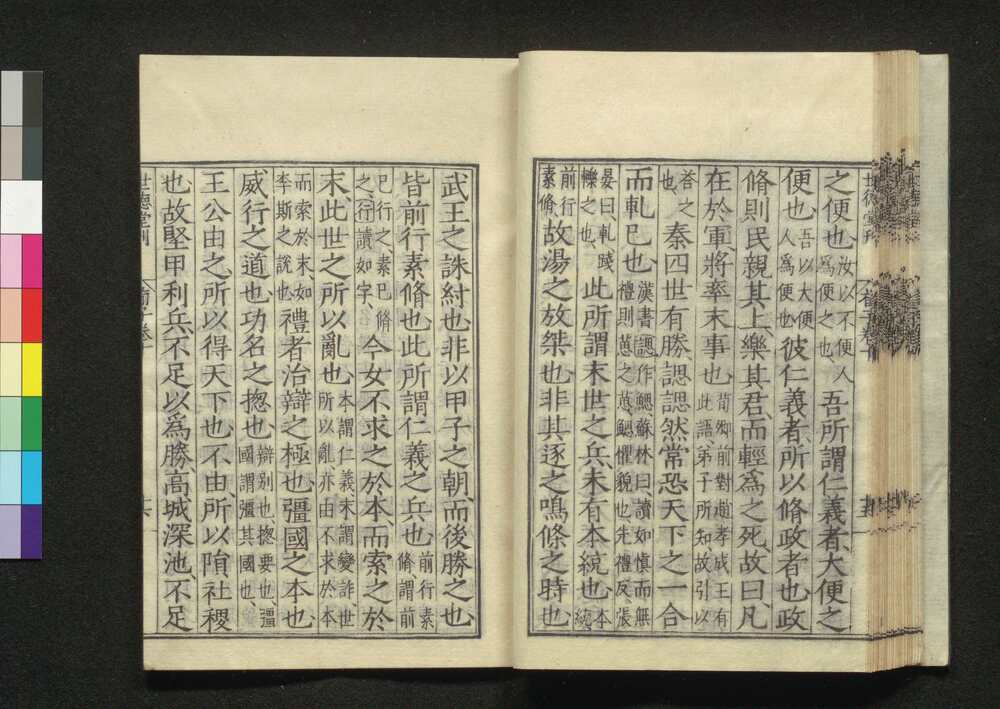 之便也汝以不便人爲便之也吾所謂仁義者大便之
便也吾以大便人爲便也彼仁義者所以脩政者也政
脩則民親其上樂其君而輕爲之死故曰凡
在於軍將率末事也荀卿前對趙孝成王有此語弟子所知故引以
荅之也秦四世有勝諰諰然常恐天下之一合
而軋己也漢書諰作鰓蘇林曰讀如慎而無禮則葸之葸鰓懼貌也先禮反張
晏曰軋踐轢之也此所謂末世之兵未有本統也本統
前行素脩故湯之放桀也非其逐之鳴條之時也
武王之誅紂也非以甲子之朝而後勝之也
皆前行素脩也此所謂仁義之兵也前行素脩謂前
已行之素已脩之行讀如字今女不求之於本而索之於
末此世之所以亂也本謂仁義末謂變詐世所以亂亦由不求於本
而索於末如李斯之說也禮者治辯之極也彊國之本也
威行之道也功名之揔也辯别也揔要也彊國謂彊其國也
王公由之所以得天下也不由所以隕社稷
也故堅甲利兵不足以爲勝高城深池不足
世德堂刊